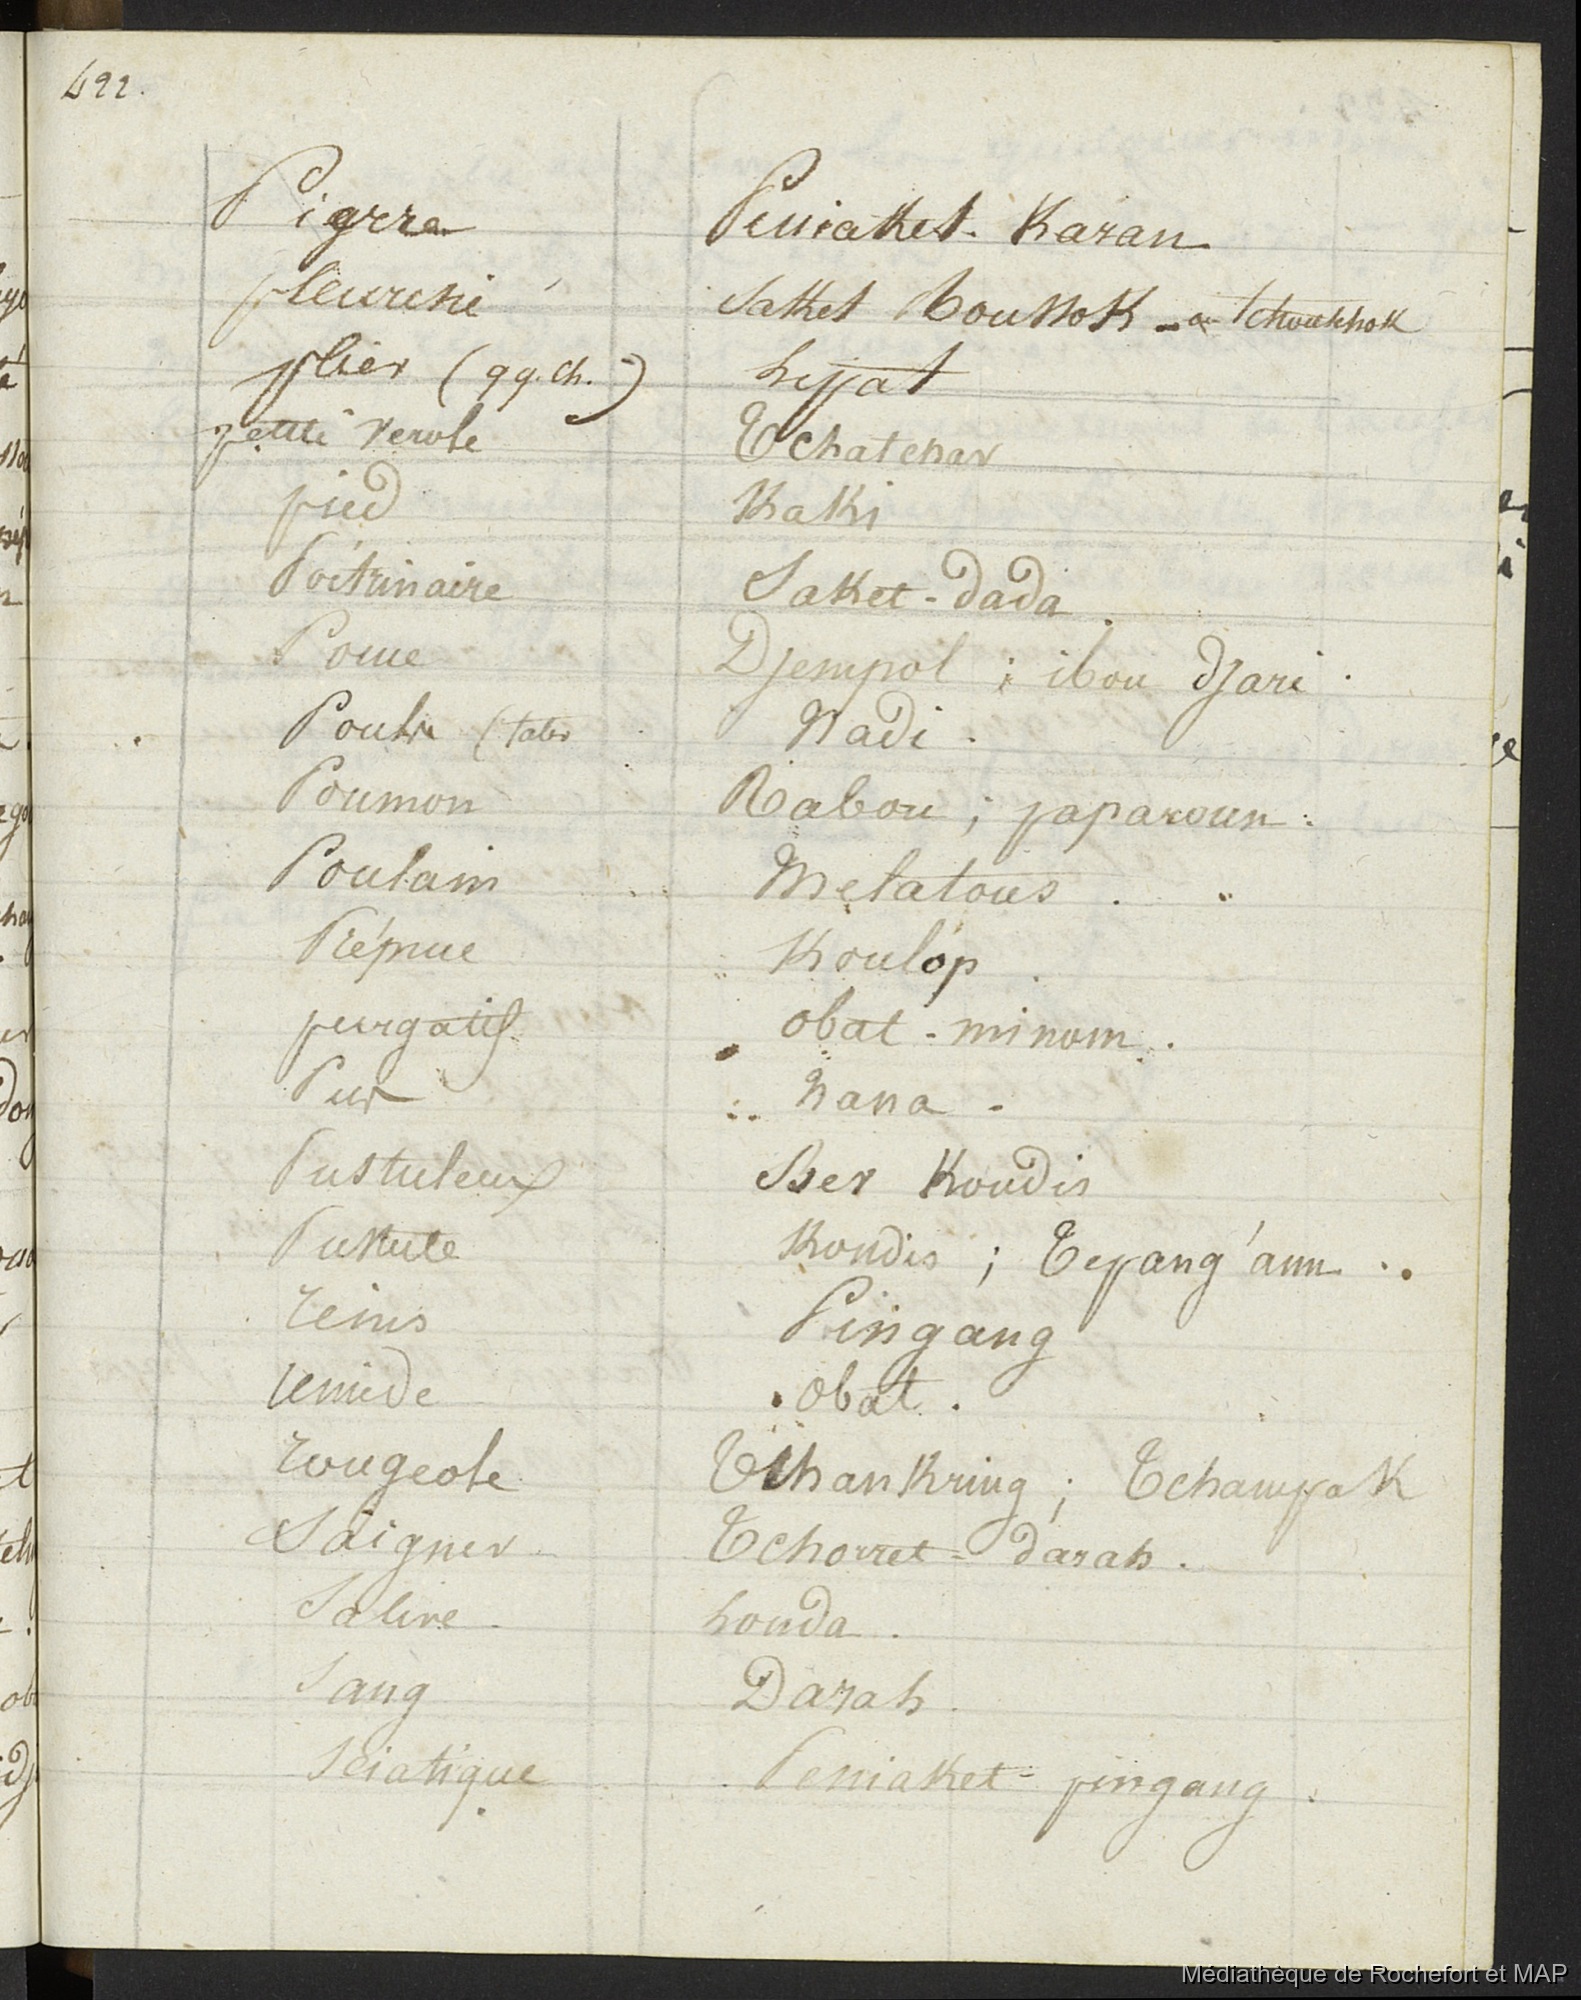 422.
Pigrre Peniaket. Karan
pleurésie Saket boussok - ou tchoukhok
plier (qq. ch.) lippat
petite verole Tchatchar
pied Kaki
Poitrinaire Saket - dada
Pouce Djempol ; ibou djari .
Pouls (tater Nadi .
Poumon Rabou ; paparoun .
Poulain Melatous .
Prépuce Koulop
purgatif obat - minom .
Pus nana .
Pustuleux Ber Koudis
Pustule Koudis ; Tepang'ann ..
reins Pingang
remède obat .
rougeole Tchankring ; Tchampak
Saigner Tchorret - darah .
Salive louda .
Sang Darah .
Sciatique Peniaket - pingang .
Médiathèque de Rochefort et MAP